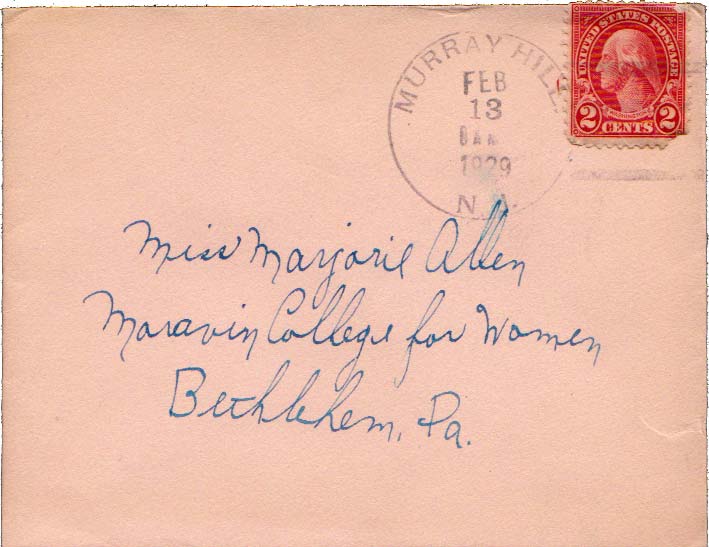 MURRAY HILL
FEB
13
8 AM
1929
N.J.
UNITED STATES POSTAGE
WASHINGTON
2 CENTS 2
Miss Marjorie Allen
Moravin College for Women
Bethlehem, Pa.